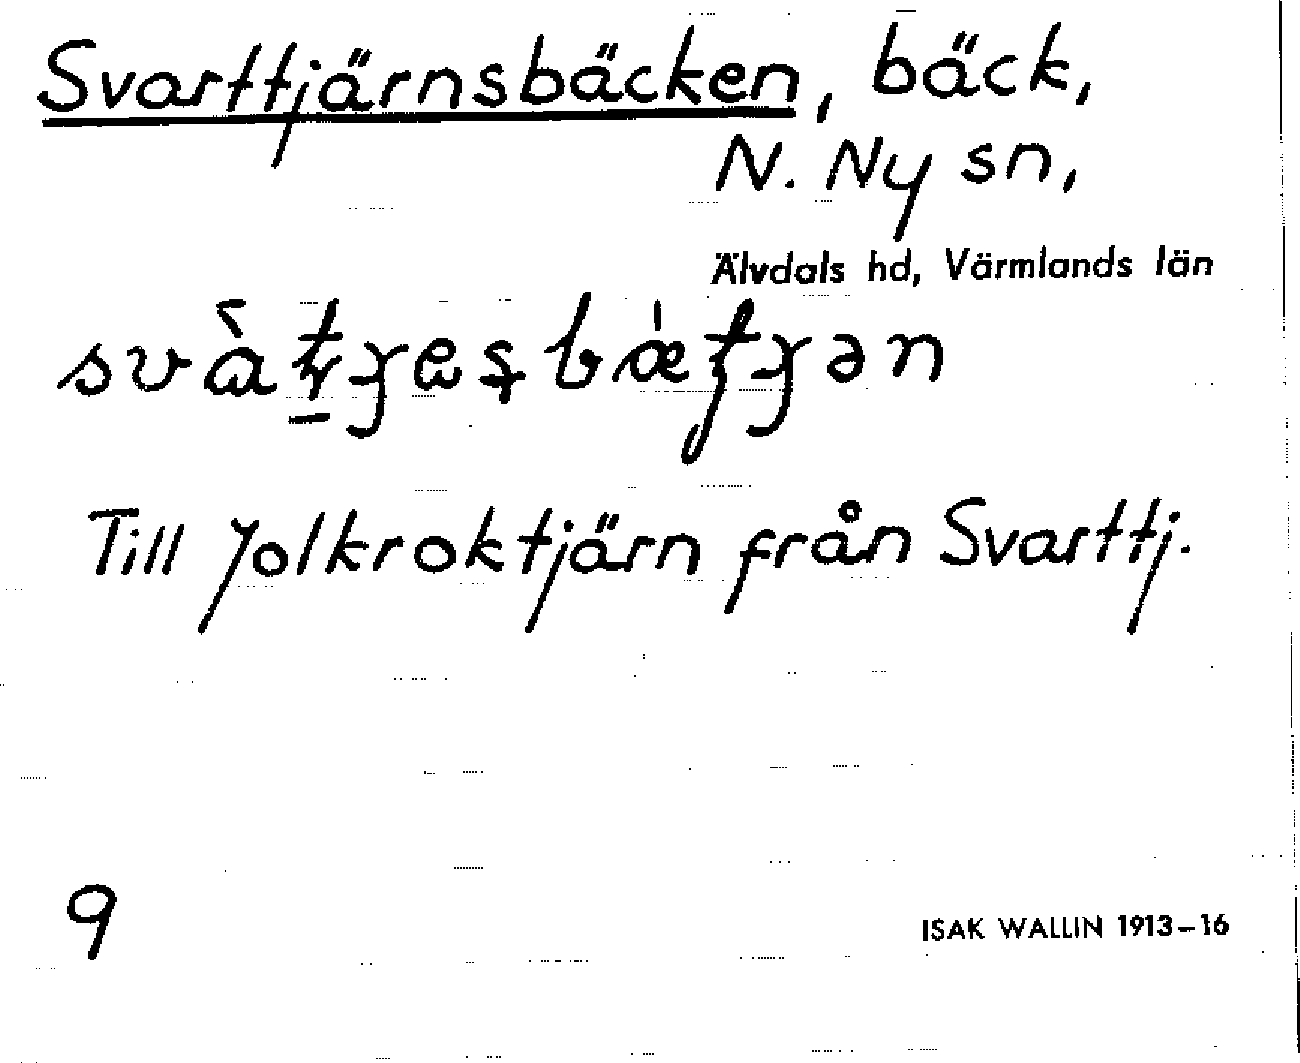 Svarttjärnsbäcken, bäck,
N. Ny sn,
Älvdals hd, Värmlands län
Till Jolkroktjärn från Svarttj.
9
ISAK WALLIN 1913-16